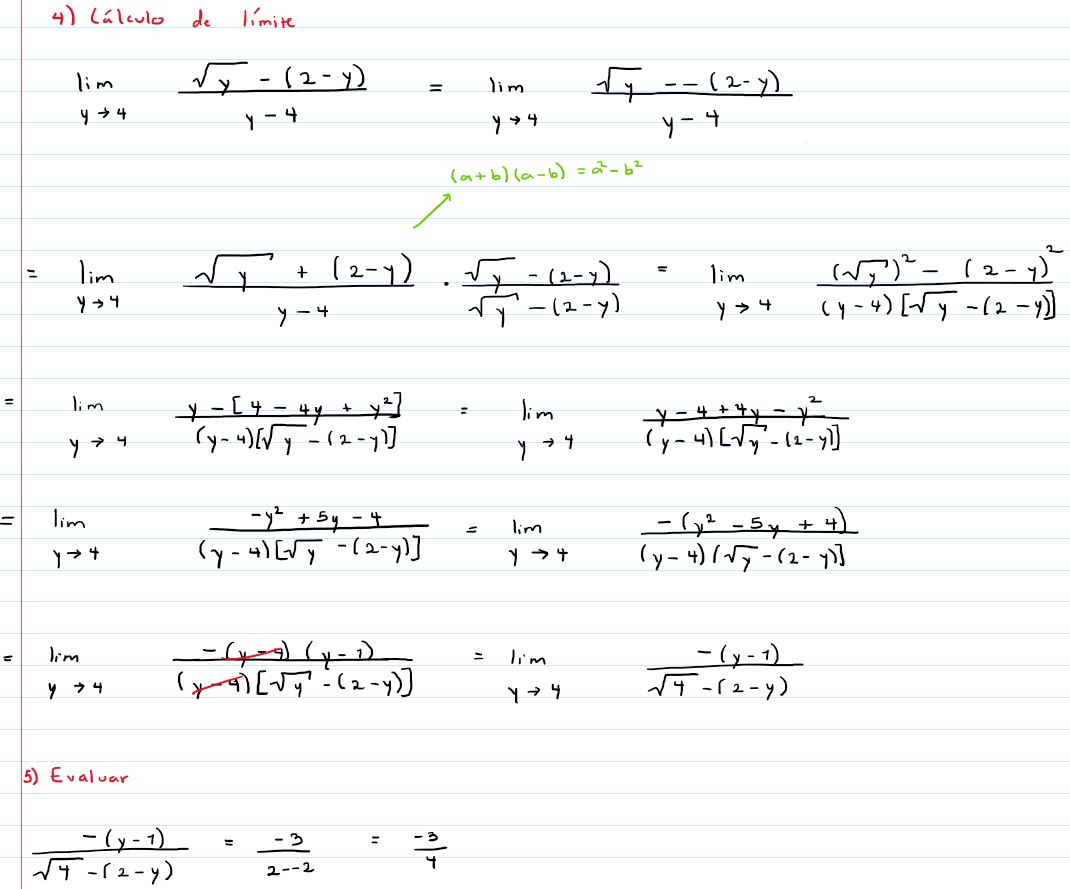 4) Cálculo de límite
lim y→4 (√y - (2-y))/(y-4) = lim y→4 (√y --(2-y))/(y-4)
(a+b)(a-b) = a²-b²
= lim y→4 (√y + (2-y))/(y-4) · (√y -(2-y))/(√y -(2-y)) = lim y→4 ((√y)² - (2-y)²)/((y-4)[√y -(2-y)])
= lim y→4 (y-[4-4y+y²])/((y-4)[√y -(2-y)]) = lim y→4 (y-4+4y-y²)/((y-4)[√y -(2-y)])
= lim y→4 (-y²+5y-4)/((y-4)[√y -(2-y)]) = lim y→4 (-(y²-5y+4))/((y-4)(√y -(2-y)])
= lim y→4 (-(y-4)(y-1))/((y-4)[√y -(2-y)]) = lim y→4 (-(y-1))/(√4 -(2-y))
5) Evaluar
(-(y-1))/(√4 -(2-y)) = (-3)/(2--2) = (-3)/4